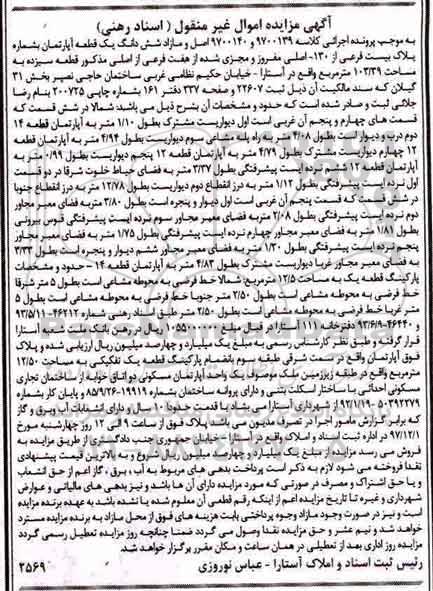 آگهی مزایده اموال غیر منقول ( اسناد رهنی)
به موجب پرونده اجرائی کلاسه ۹۷۰۰۱۳۹ و ۹۷۰۰۱۴۰ اصل و مازاد شش دانگ یک قطعه آپارتمان بشماره
پلاک بیست فرعی از ۱۳۰- اصلی مفروز و مجزی شده از هفت فرعی از اصلی مذکور قطعه سیزده به
مساحت ۱۰۳/۳۹ مترمربع واقع در آستارا - خیابان حکیم نظامی غربی ساختمان حاجی نصیر بخش ۳۱
گیلان که سند مالکیت آن ذیل ثبت ۲۲۶۰۷ و صفحه ۳۳۷ دفتر ۱۶۱ بشماره چاپی ۲۰۰۷۲۵ بنام رضا
جلائی ثبت و صادر شده است که حدود و مشخصات آن بشرح ذیل می باشد: شمالا در شش قسمت که
قسمت های چهارم و پنجم آن غربی است اول دیواریست مشترک بطول ۱/۱۰ متر به آپارتمان قطعه ۱۴
دوم درب و دیوار است بطول ۴/۰۸ متر به راه پله مشاعی سوم دیواریست بطول ۴/۹۴ متر به آپارتمان قطعه
۱۲ چهارم دیواریست مشترک بطول ۴/۷۹ متر به آپارتمان قطعه ۱۲ پنجم دیواریست بطول ۰/۹۹ متر به
آپارتمان قطعه ۱۲ ششم نرده ایست پیشرفتگی بطول ۳/۳۷ متر به فضای حیاط خلوت شرقا در دو قسمت
اول نرده ایست پیشرفتگی بطول ۱/۱۲ متر به درز انقطاع دوم دیواریست بطول ۱۲/۷۸ متر به درز انقطاع جنوبا
در شش قسمت که قسمت پنجم آن غربی است اول دیوار و پنجره است بطول ۳/۸۰ متر به فضای معبر مجاور
دوم نرده ایست پیشرفتگی بطول ۲/۰۸ متر به فضای معبر مجاور سوم نرده ایست پیشرفتگی قوس بیرونی
بطول ۱/۸۱ متر به فضای معبر مجاور چهارم نرده ایست پیشرفتگی بطول ۱/۷۵ متر به فضای معبر مجاور
پنجم نرده ایست پیشرفتگی بطول ۱/۲۰ متر به فضای معبر مجاور ششم دیوار و پنجره است بطول ۳/۳۳
به فضای معبر مجاور غربا دیواریست مشترک بطول ۴/۸۳ متر به آپارتمان قطعه ۱۴ - حدود و مشخصات
پارکینگ قطعه یک به مساحت ۱۲/۵ مترمربع: شمالا خط فرضی به محوطه مشاعی است بطول ۵ متر شرقا
خط فرضی به محوطه مشاعی است بطول ۲/۵۰ متر جنوبا خط فرضی به محوطه مشاعی است بطول ۵
متر غربا خط فرضی به محوطه مشاعی است بطول ۲/۵۰ متر طبق اسناد رهنی شماره ۴۶۲۱۲-۹۳/۵/۱۱
و ۴۶۴۴۰-۹۳/۶/۹ دفترخانه ۱۱۱ آستارا در قبال مبلغ ۱۰۵۵۰۰۰۰۰۰ ریال در رهن بانک ملت شعبه آستارا
قرار گرفته و طبق نظر کارشناس رسمی به مبلغ یک میلیارد و چهارصد میلیون ریال ارزیابی شده و پلاک
فوق آپارتمان واقع در سمت شرقی طبقه سوم بانضمام پارکینگ قطعه یک تفکیکی به مساحت ۱۲/۵۰
مترمربع واقع در طبقه زیرزمین ملک موصوف یک واحد آپارتمان مسکونی دو اتاق خوابه از ساختمان تجاری
مسکونی احداثی با ساختار اسکلت بتنی و دارای پروانه ساختمان بشماره ۱۹۹۱۹-۸۵/۹/۲۶ و پایان کار بشماره
۵۰۳۹۲۲۷۹-۹۲/۷/۱۹ شهرداری آستارا می باشد با قدمت حدودا ۱۰ سال و دارای انشعابات آب و برق و گاز
که برابر گزارش مامور اجرا در تصرف مدیون می باشد پلاک فوق از ساعت ۹ الی ۱۲ روز چهارشنبه مورخ
۹۷/۱۲/۱ در اداره ثبت اسناد و املاک واقع در آستارا - خیابان جمهوری جنب دادگستری از طریق مزایده به
فروش می رسد مزایده از مبلغ یک میلیارد و چهارصد میلیون ریال شروع و به بالاترین قیمت پیشنهادی
نقدا فروخته می شود لازم به ذکر است پرداخت بدهی های مربوط به آب ، برق ، گاز اعم از حق انشعاب
و یا حق اشتراک و مصرف در صورتی که مورد مزایده دارای آن ها باشد و نیز بدهی های مالیاتی و عوارض
شهرداری و غیره تا تاریخ مزایده اعم از اینکه رقم قطعی آن معلوم شده یا نشده باشد به عهده برنده مزایده
است و نیز در صورت وجود مازاد وجوه پرداختی بابت هزینه های فوق از محل مازاد به برنده مزایده مسترد
خواهد شد و نیم عشر و حق مزایده نقدا وصول می گردد ضمنا چنانچه روز مزایده تعطیل رسمی گردد
مزایده روز اداری بعد از تعطیلی در همان ساعت و مکان مقرر برگزار خواهد شد.
رئیس ثبت اسناد و املاک آستارا - عباس نوروزی ۳۵۶۹